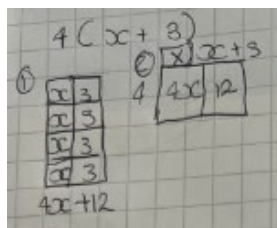 4(x+3)
① 
x 3
x 3
x 3
x 3
4x+12
② × x+3
4 4x 12